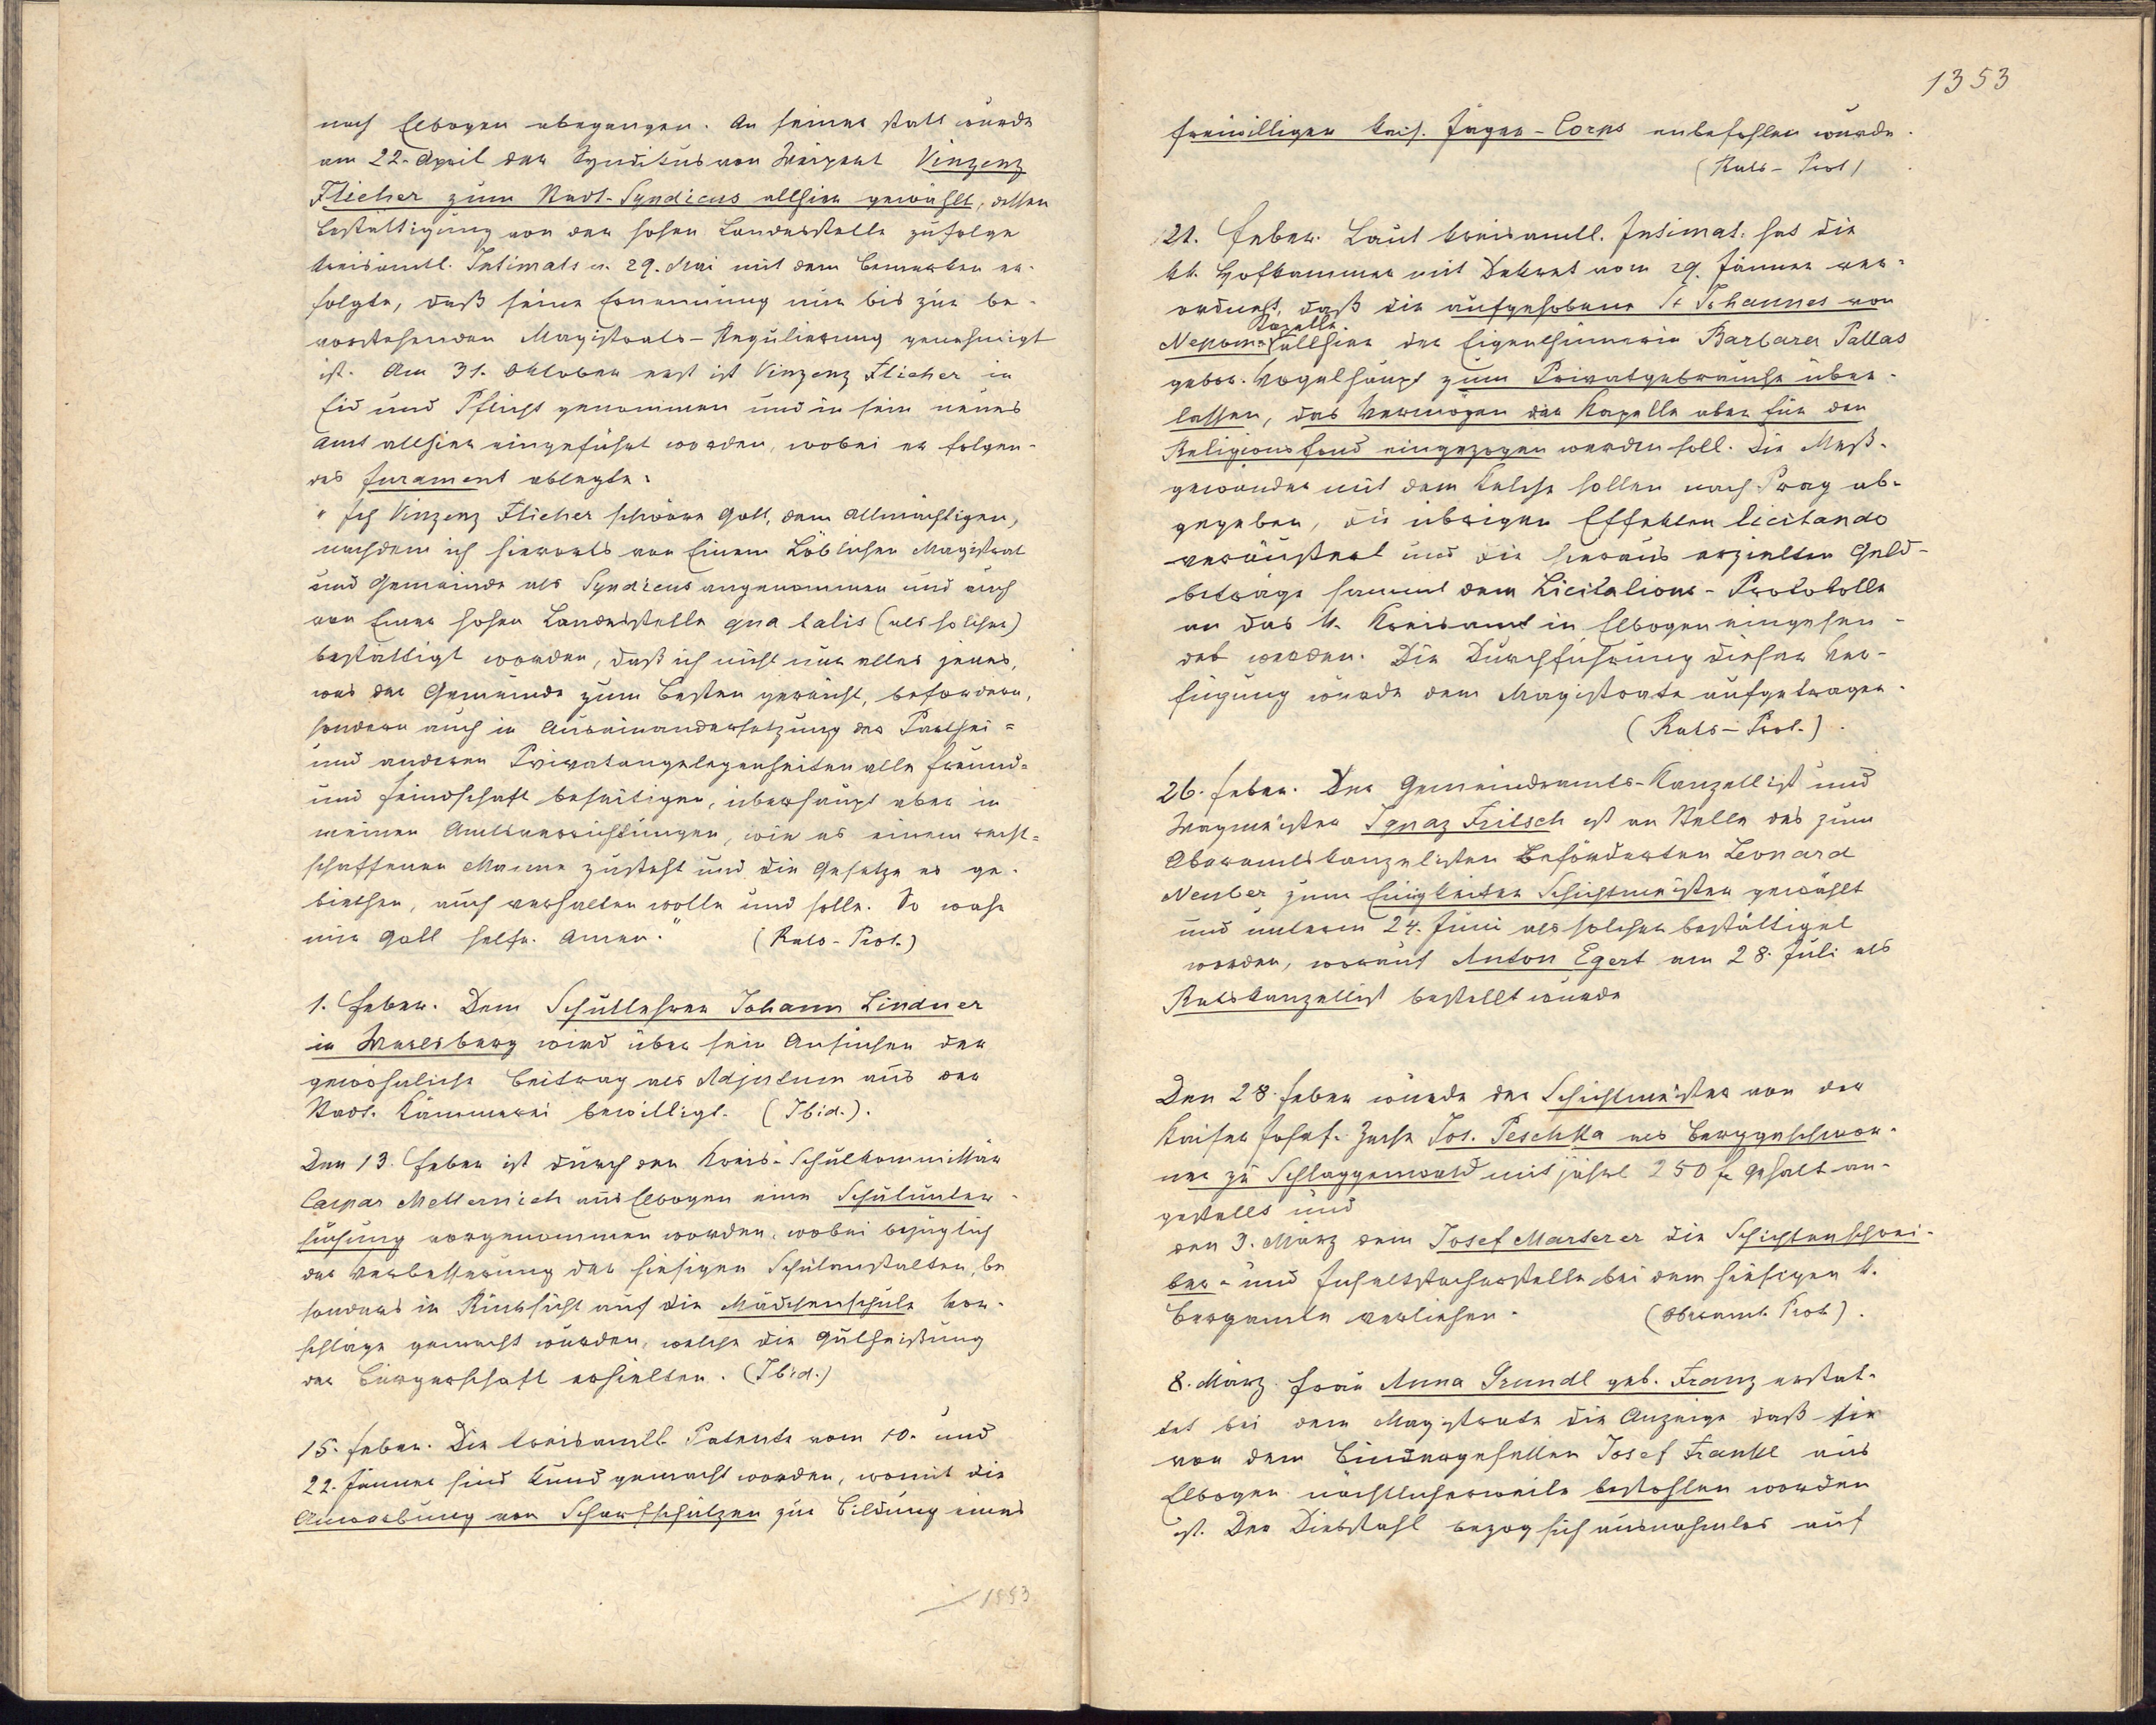 nach Elbogen abgegangen. An seiner statt wurde
am 22. April der Syndikus von Weipert Vinzenz
Flieher zum Stadt-Syndicus allhier gewählt, dessen
Bestättigung von der hohen Landesstelle zufolge
kreisamtl. Intimats v. 29. Mai mit dem Bemerken er-
folgte, daß seine Ernennung nur bis zur be-
vorstehenden Magistrats-Regulierung genehmigt
ist. Am 31. Oktober erst ist Vinzenz Flieher in
Eid und Pflicht genommen und in sein neues
Amt allhier eingeführt worden, wobei er folgen-
des Jurament ablegte:
"Ich Vinzenz Flieher schwöre Gott, dem Allmächtigen,
nachdem ich hierorts von Einem Löblichen Magistrat
und Gemeinde als Syndicus angenommen und auch
von Einer hohen Landesstelle qua talis (als solcher)
bestättigt worden, daß ich nicht nur alles jenes,
was der Gemeinde zum Besten gereicht, befördern,
sondern auch in Auseinandersetzung der Parthei=
und anderen Privatangelegenheiten alle Freund=
und Feindschaft beseitigen, überhaupt aber in
meinen Amtsverrichtungen, wie es einem recht=
schaffenen Manne zusteht und die Gesetze es ge-
biethen, auch verhalten wolle und solle. So wahr
mir Gott helfe. Amen." (Rats-Prot.)
1. Feber. Dem Schullehrer Johann Lindner
in wird über sein Ansuchen der
gewöhnliche Beitrag als Adjutum aus der
Stadt. Kämmerei bewilligt. (Ibid.).
Den 13. Feber ist durch den Kreis-Schulkommissär
Caspar Metternich aus Elbogen eine Schulunter-
suchung vorgenommen worden, wobei bezüglich
der Verbesserung der hiesigen Schulanstalten, be
sonders in Rücksicht auf die Mädchenschule Vor-
schläge gemacht wurden, welche die Gutheißung
der Bürgerschaft erhielten. (Ibid.)
15. Feber. Die kreisamtl. Patente vom 10. und
22. Jänner sind kund gemacht worden, womit die
Anwerbung von Scharfschützen zur Bildung eines
1353
1353
freiwilligen kais. Jäger-Corps anbefohlen wurde.
(Rats-Prot)
21. Feber. Laut kreisamtl. Intimat. hat die
kk. Hofkammer mit Dekret vom 29. Jänner ver-
ordnet, daß die aufgehobene St Johannes von
Kapelle
Nepom. allhier der Eigenthümerin Barbara Pallas
gebor. Vogelhaupt zum Privatgebrauche über-
lassen, das Vermögen der Kapelle aber für den
Religionsfond eingezogen werden soll. Die Meß-
gewänder mit dem Kelche sollen nach Prag ab-
gegeben, die übrigen Effekten licitando
veräußert und die hieraus erzielten Geld-
beträge sammt dem Licitations-Protokolle
an das k. Kreisamt in Elbogen eingesen-
det werden. Die Durchführung dieser Ver-
fügung wurde dem Magistrate aufgetragen.
(Rats-Prot.).
26. Feber. Der Gemeindeamts-Kanzellist und
Wagmeister Ignaz Fritsch ist an Stelle des zum
Oberamtskanzelisten beförderten Leonard
Neuber zum Einigkeiter Schichtmeister gewählt
und unterm 24. Juni als solcher bestättiget
worden, worauf Anton Egert am 28. Juli als
Ratskanzellist bestellt wurde
Den 28. Feber wurde der Schichtmeister von der
Kaiser Josef-Zeche Jos. Peschka als Berggeschwor-
ner zu Schlaggenwald mit jährl 250 fr Gehalt an-
gestellt und
den 3. März dem Josef Marterer die Schichtenschrei-
ber- und bei dem hiesigen k.
Bergamte verliehen. (Oberamt. Prot.).
8. März. Frau Anna Grundl geb. Franz erstat-
tet bei dem Magistrate die Anzeige daß sie
von dem Bindergesellen Josef Frankl aus
Elbogen nächtlicherweile bestohlen worden
ist. Der Diebstahl bezog sich ausnahmlos auf